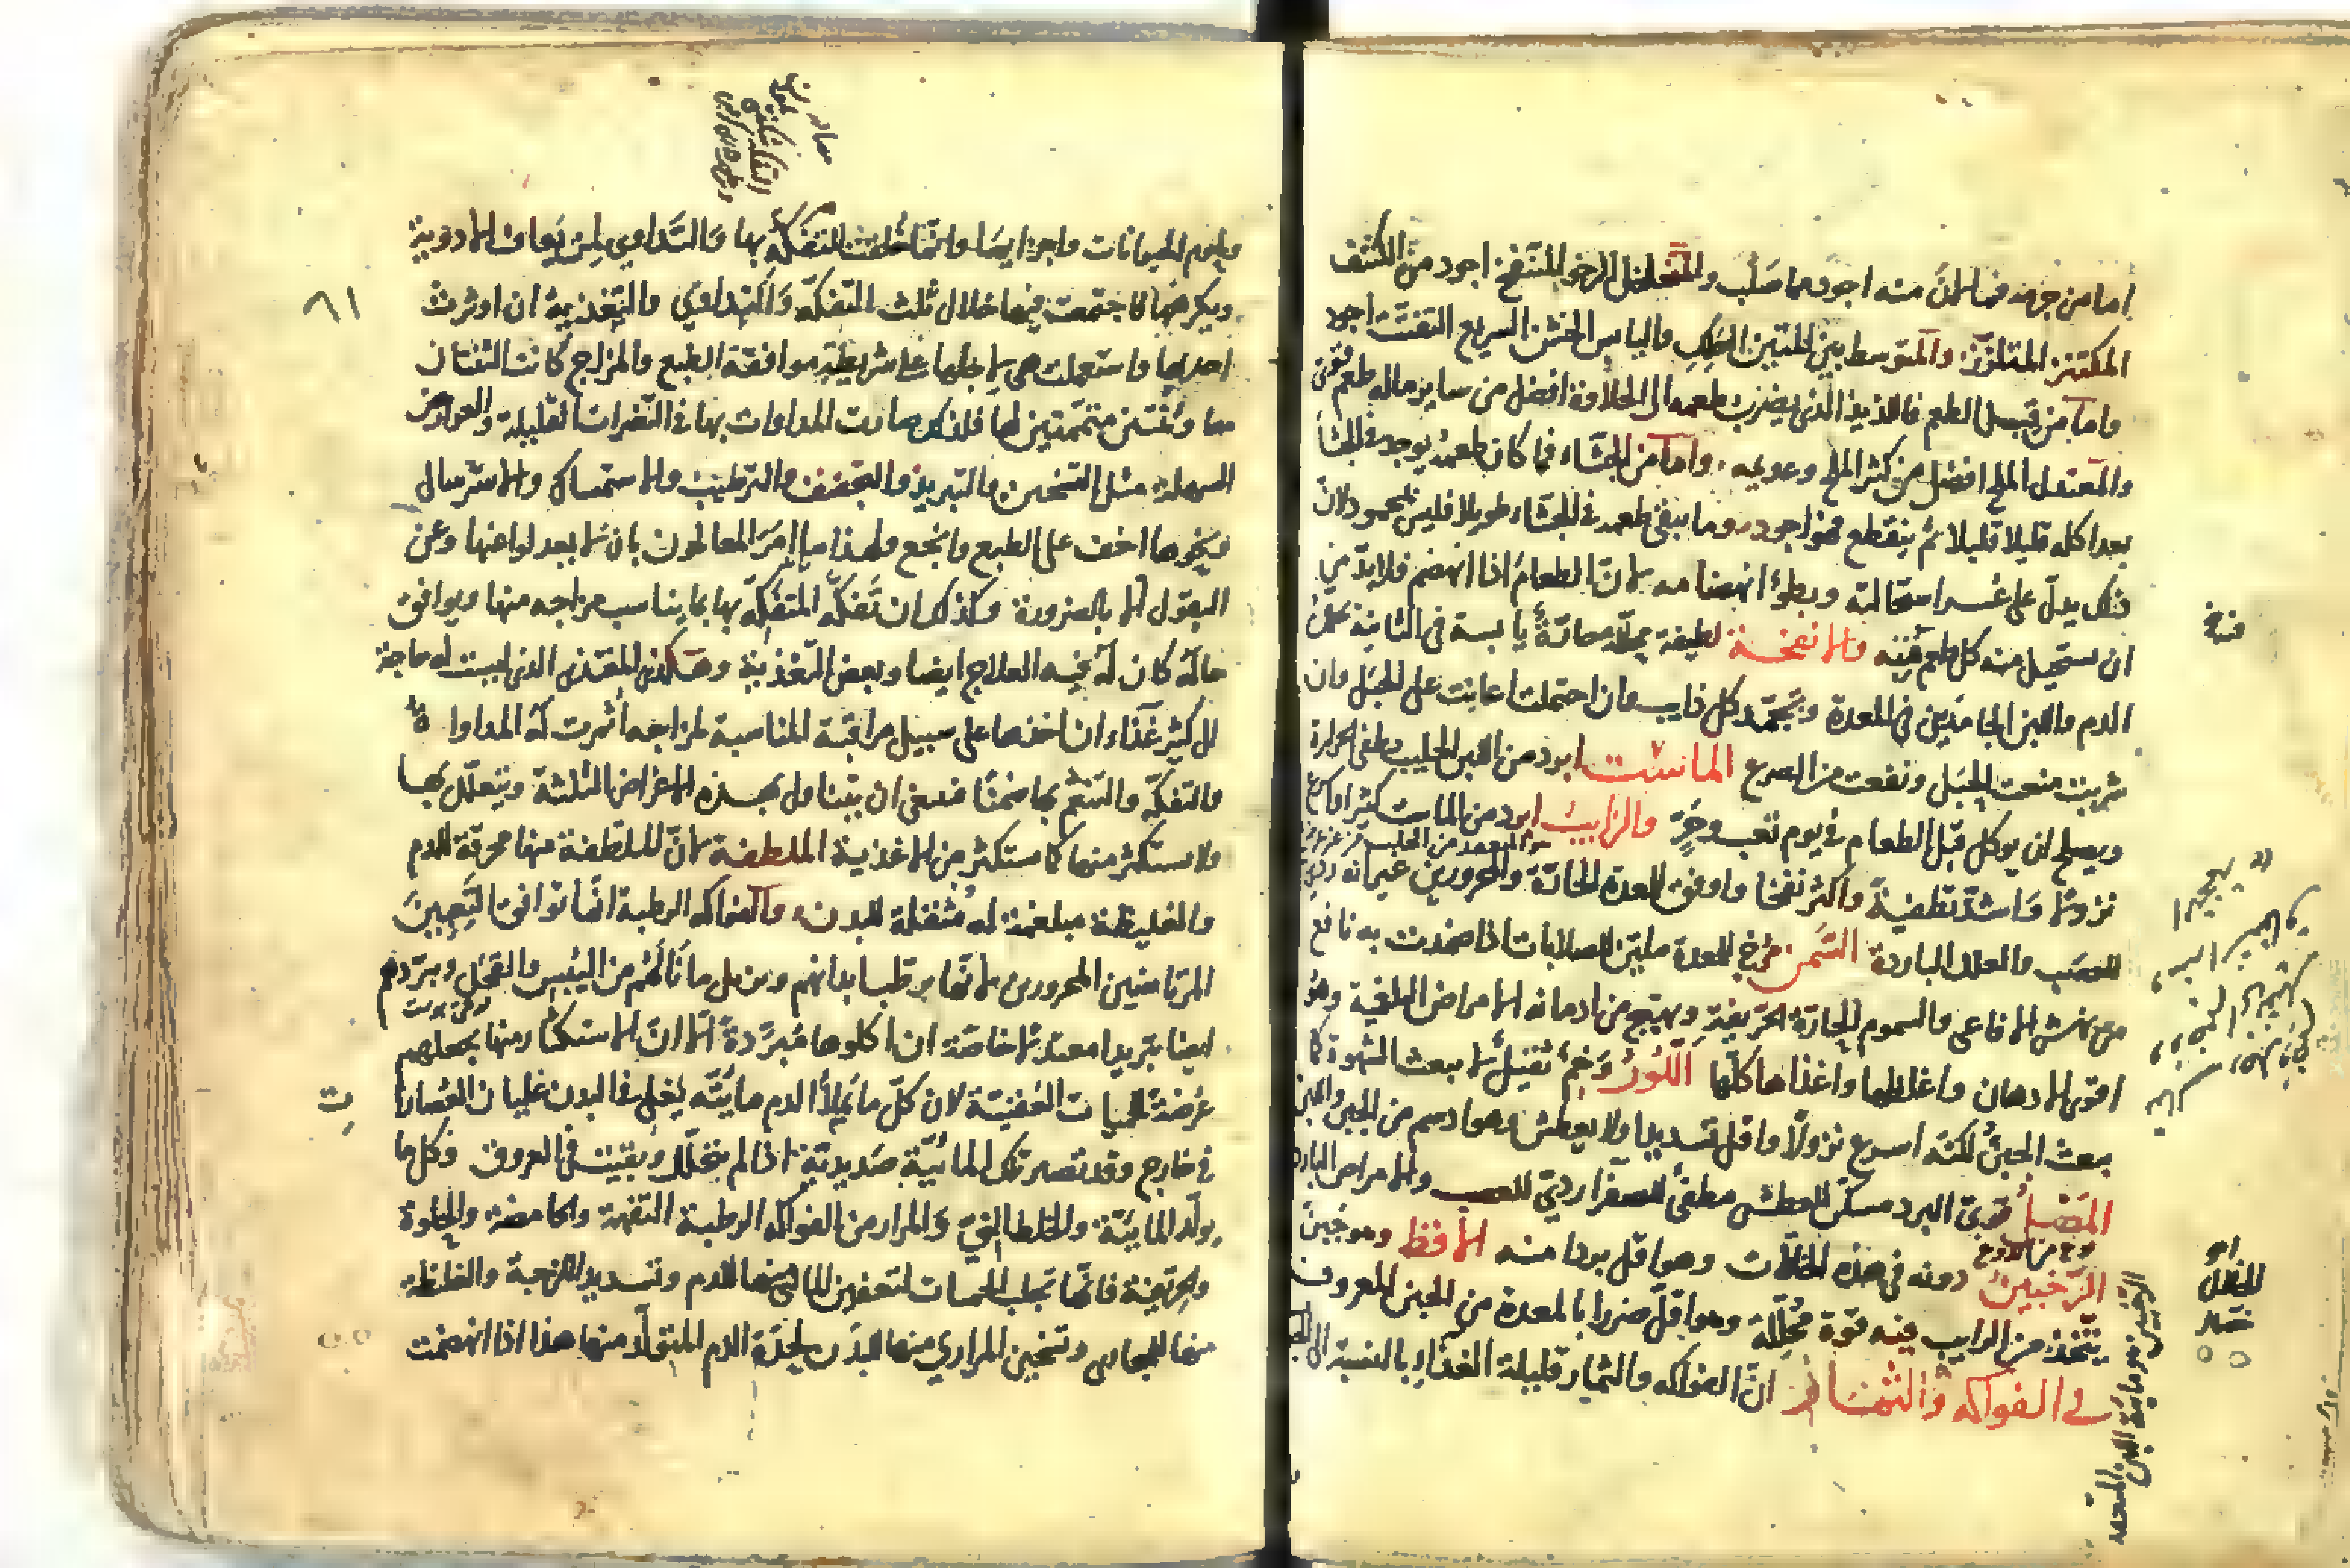 اما من جرمه فما لان منه اجود مما صلب والمتخلخل الرخو المنتفخ اجود من الكثيف
المكتنز المتلزز والمتوسط بين اللين العلك واليابس الخشن السريع التفتت اجود
واما من قبل الطعم فاللذيذ الذى يضرب طعمه الى الحلاوة افضل من ساير ماله طعم قوى
والمعتدل الملح افضل من كثير الملح وعديمه واما من الجشاء فما كان طعمه يوجد فى الجشاء
بعد اكله قليلا قليلا ثم ينقطع فهو اجود وما يبقى طعمه فى الجشاء طويلا فليس بمحمود لان
ذلك يدل على عسر استحالته وبطؤ انهضامه لان الطعام اذا انهضم فلا بد من
ان يستحيل منه كل طعم فيه والانفحة لطيفة محللة حارة يابسة فى الثانية تحلل
الدم واللبن الجامدين فى المعدة وتجمد كل ذايب وان احتملت اعانت على الحبل وان
شربت منعت الحبل ونفعت من الصرع الماست ابرد من اللبن الحليب يطفى الحرارة
ويصلح ان يوكل قبل الطعام فى يوم تعب وحر والرايب ابرد من الماست كثيرا واسرع
نزولا واشد تطفية واكثر نفخا واوفق للمعدة الحارة والمحرورين غير انه ردى
للعصب والعلل الباردة السمن مرخ للمعدة ملين للصلابات اذا ضمدت به نافع
من نهش الافاعى والسموم الحارة الحريفة ويهيج من ادمانه الامراض البلغمية وهو
اقوى الادهان واغلظها واغذاها كلها اللور وخم ثقيل لا يبعث الشهوة كما
يبعث الجبن لكنه اسرع نزولا واقل تسديدا ولا يعطش وهو ادسم من الجبن واللبن
المصل قوى البرد مسكن للعطش مطفئ للصفرا ردئ للعصب والامراض الباردة
الرخبين دونه فى هذه الخلات وهو اقل بردا منه الاقط وهو جبن
يتخذ من الرايب فيه قوة محللة وهو اقل ضررا بالمعدة من الجبن المعروف
فى الفواكه والثمار ان الفواكه والثمار قليلة الغذاء بالنسبة الى
ولحوم الحيوانات واجزايها وانما خلقت للتفكه بها والتداوى لمن يعاف الادوية
ويكرهها فاجتمعت فيها خلال ثلث التفكه والتداوى والتغذية ان اوثرت
احديها واستعملت هى لاجلها على شريطة موافقة الطبع والمزاج كانت الثنتان
متممتين لها فلذلك صارت المداوات بها فى التغيرات القليلة والعوارض
السهلة مثل التسخين والتبريد والتجفيف والترطيب والاستمساك والاسترسال
ونحوها اخف على الطبع وانجع ولهذا ما امر المعالجون بان لا يعدلوا عنها وعن
البقول الا بالضرورة وكذلك ان تفكه المتفكه بها بما يناسب مزاجه منها ويوافق
حاله كان له فيه العلاج ايضا وبعض التغذية وهكذى المغتذى الذى ليست له حاجة
الى كثير غذاء ان اخذها على سبيل مراقبة المناسبة لمزاجه أثرت له المداواة
والتفكه والتنعم بها ضمنا فينبغى ان يتناول لهذه الاغراض الثلثة ويتعلل بها
ولا يستكثر منها كما يستكثر من الاغذية الملطفة لان الملطفة منها محرقة للدم
والغليظة مبلغمة له مثقلة للبدن والفواكه الرطبة انما توافق التعبين
المرتاضين المحرورين لانها ترطب ابدانهم وتزيل ما نالهم من اليبس والقحل وتبردهم
ايضا تبريدا معتدلا خاصة ان اكلوها مبردة الا ان الاستكثار منها يجعلهم
عرضة للحميات العفنية لان كل ما يملأ الدم مائية يغلى فى البدن غليان العصارات
فى خارج وقد تصير تلك المائية صديدية اذا لم يتحلل وبقيت فى العروق وكل ما
يولد المايية والخلط النى والمرار من الفواكه الرطبة التفهة والحامضة والحلوة
والحريفة فانها تجلب الحميات لتعفين المائى منها للدم وتسديد اللزجة والغليظة
منها للمجارى وتسخين المرارى منها للبدن لحدة الدم المتولد منها هذا اذا انهضمت
٨١